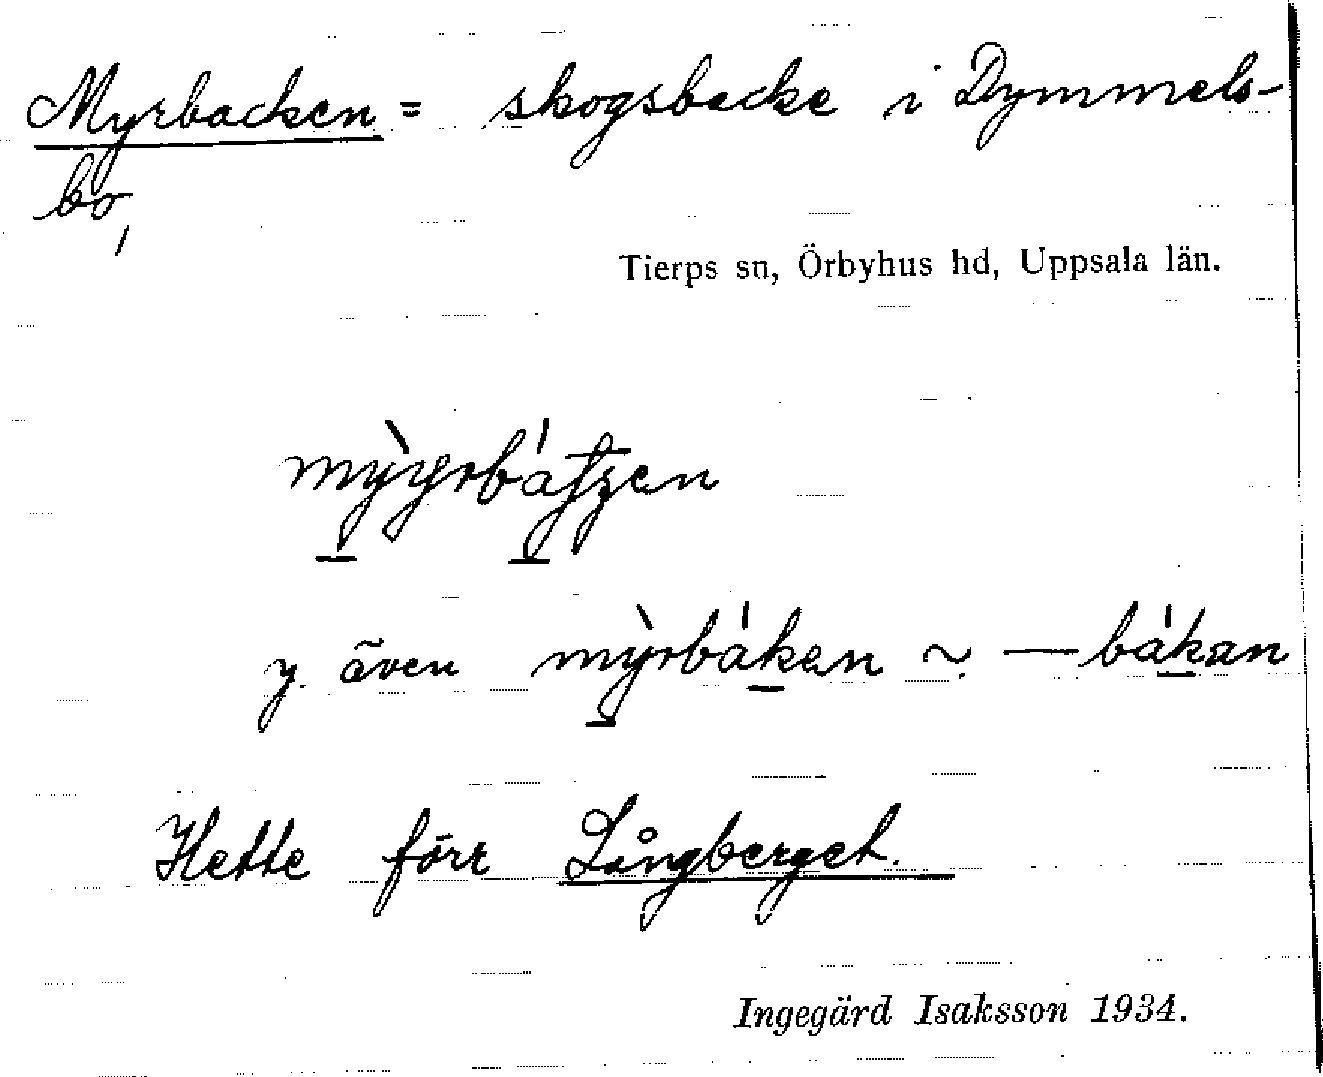 Myrbacken = skogsbacke i Dymmels-
bo,
Tierps sn, Örbyhus hd, Uppsala län.
y. även
Hette förr Långberget.
Ingegärd Isaksson 1934.